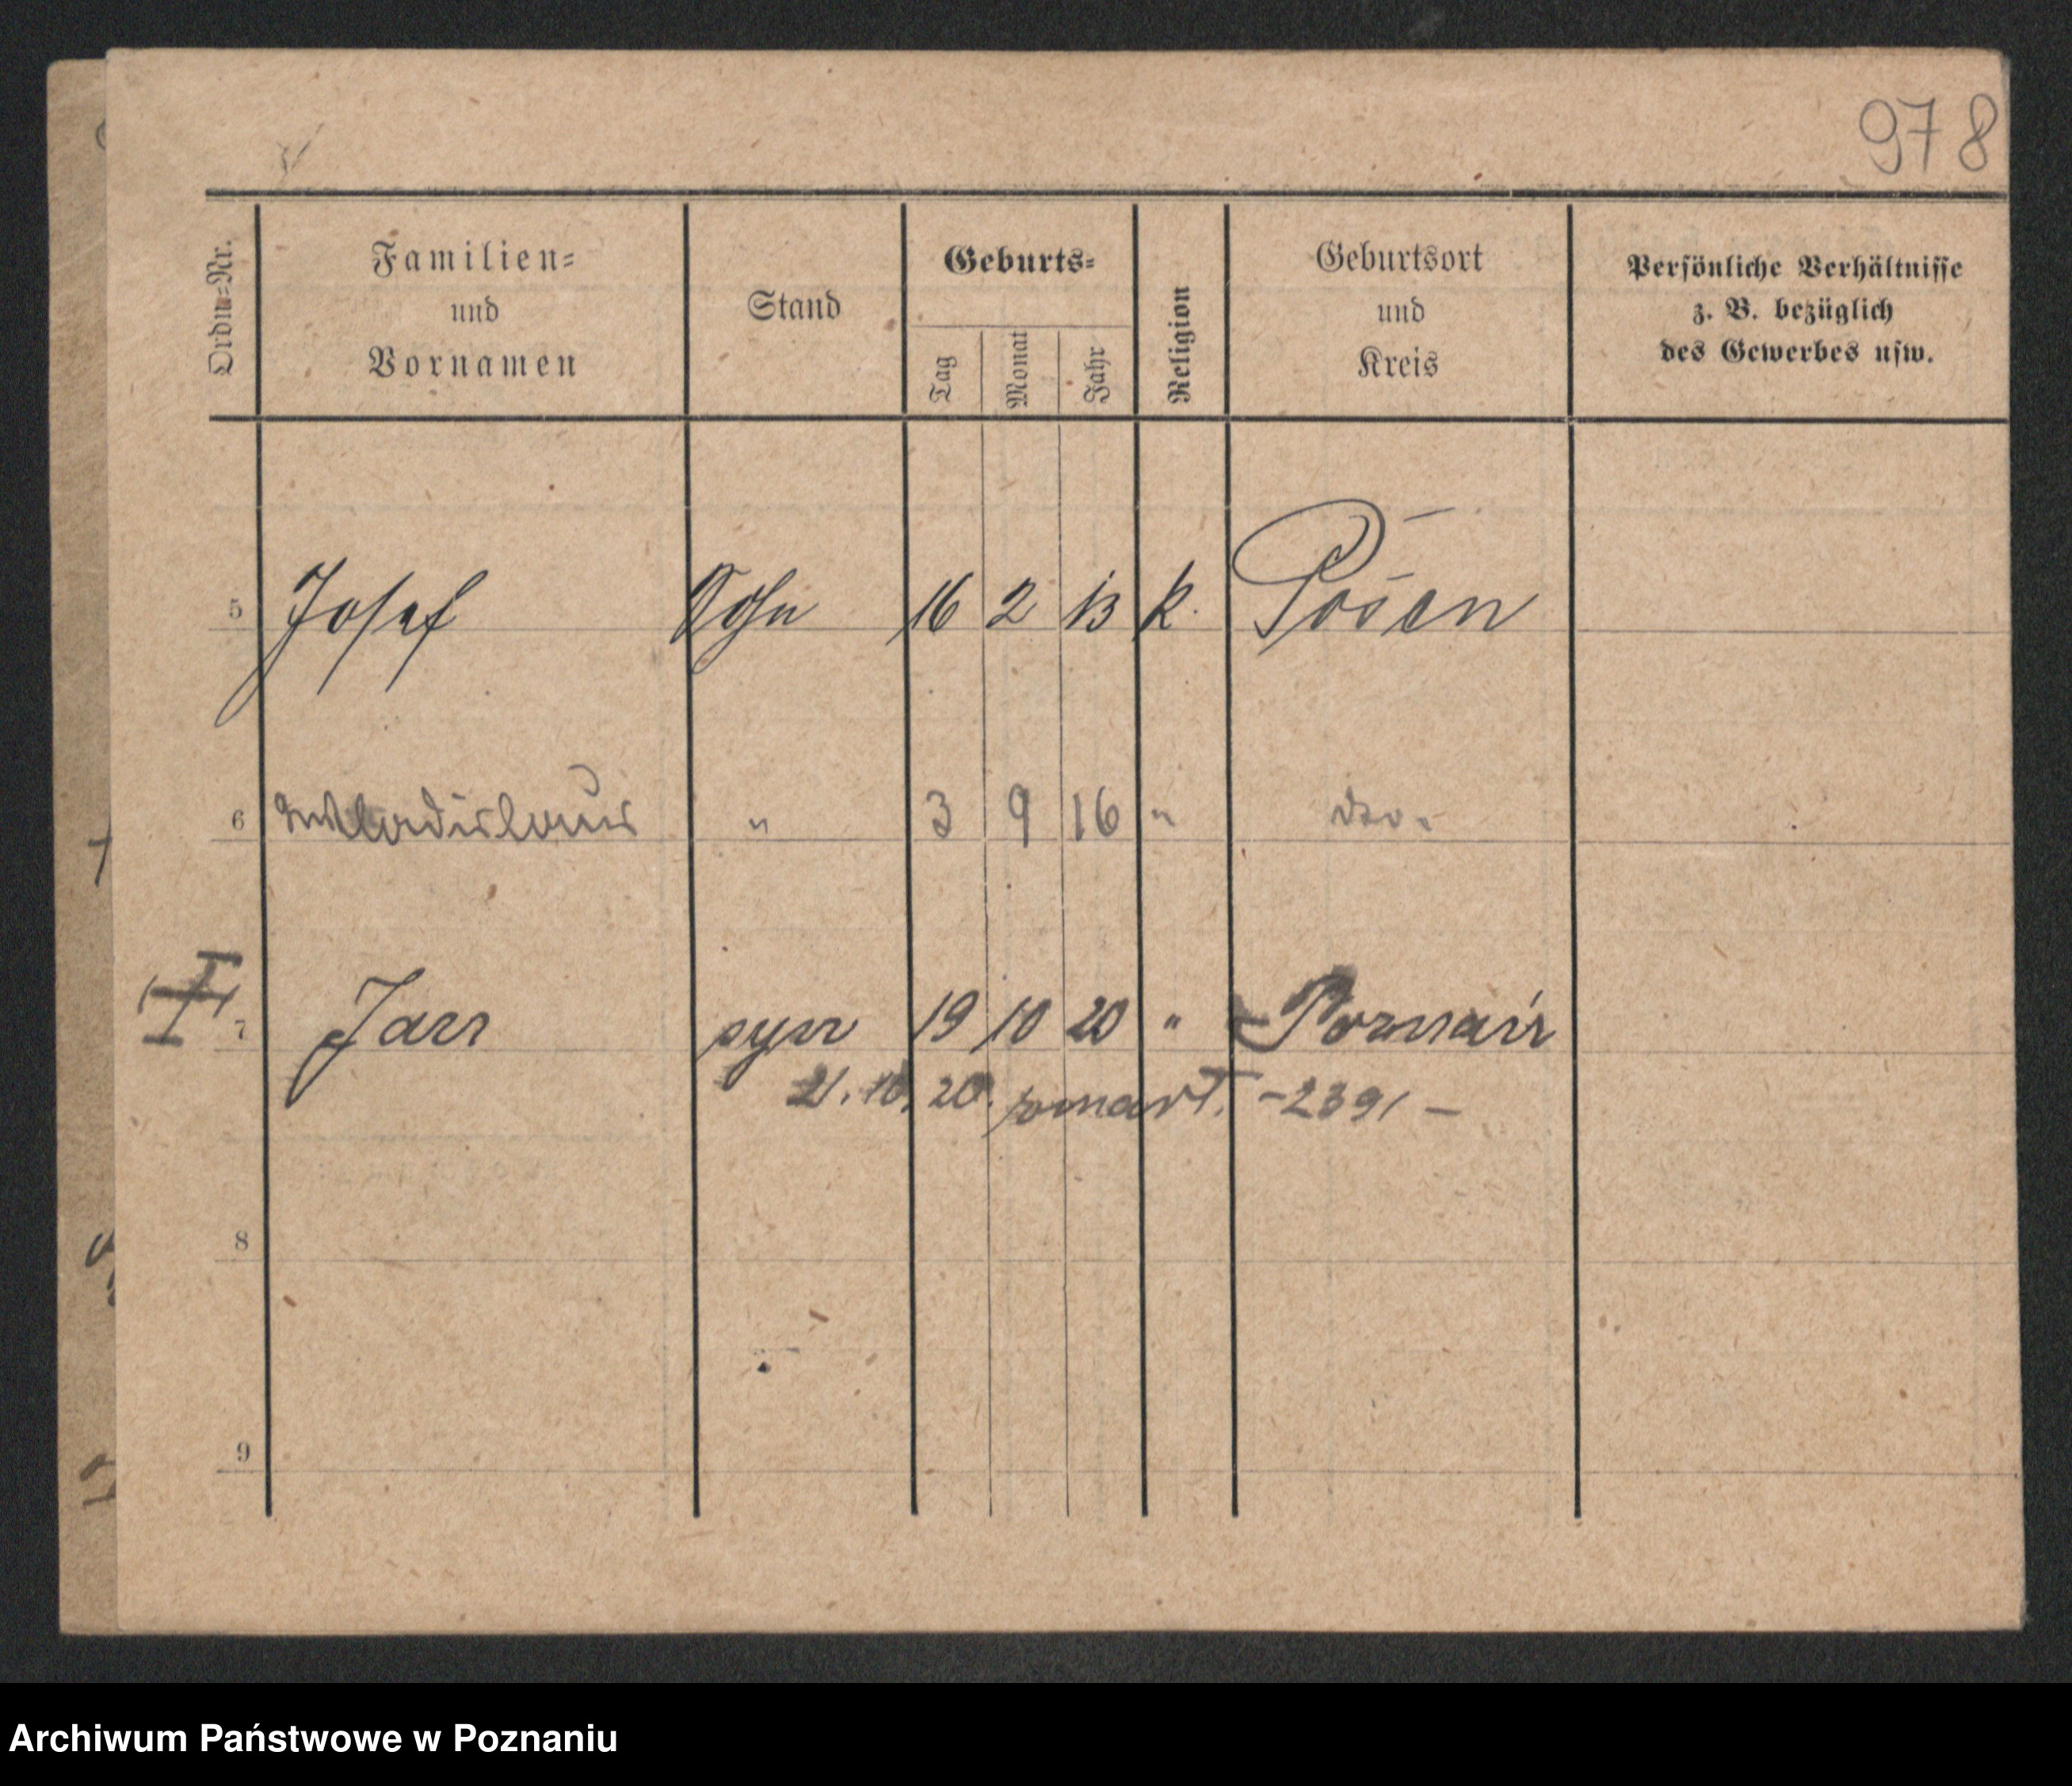 978
Ordn.-Nr.
Familien-
und
Vornamen
Stand
Geburts-
Tag
Monat
Jahr
Religion
Geburtsort
und
Kreis
Persönliche Verhältnisse
z. B. bezüglich
des Gewerbes usw.
5 Josef Sohn 16 2 13 k. Posen
6 Wladislaus " 3 9 16 " dto.
7 Jan syn 19 10 20 " Poznań
21. 10. 20. zmarł. - 2391 -
8
9
Archiwum Państwowe w Poznaniu